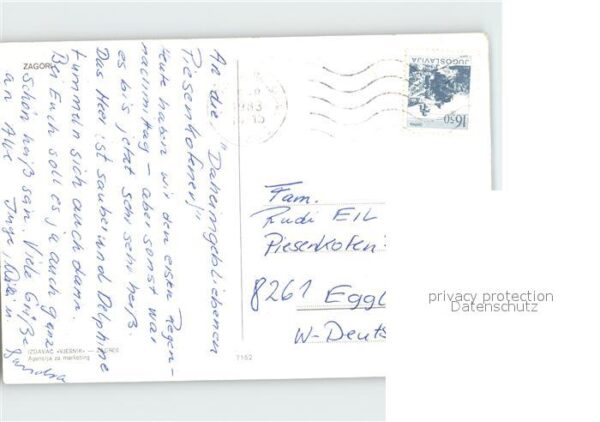 ZAGORJE
An die "Daheimgebliebenen
Piesenkofener"!
Heute haben wir den ersten Regen-
nachmittag - aber sonst war
es bis jetzt sehr sehr heiß.
Das Meer ist sauber und Delphine
tummeln sich auch darin.
Bei Euch soll es ja auch ganz
schön heiß sein. Viele Grüße
an Alle Inge,
IZDAVAČ »VJESNIK« — ZAGREB
Agencija za marketing
7162
JUGOSLAVIJA
16,50
Fam.
Rudi EIL
Piesenkofen
8261 Eggl
W-Deuts
privacy protection
Datenschutz